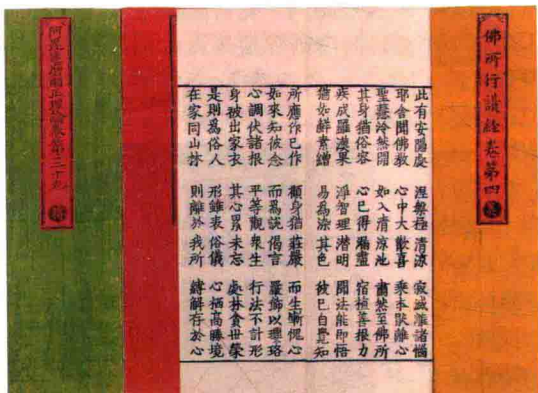 佛所行讚經卷第四
此有安隱處 涅槃極清涼 寂滅離諸惱
耶舍聞佛教 心中大歡喜 乘本厭離心
聖慧泠然開 如入清涼池 肅然至佛所
其身猶俗容 心已得漏盡 宿植善根力
疾成羅漢果 淨智理潛明 聞法能即悟
猶如鮮素繒 易為染其色 彼已自覺知
所應作已作 顧身猶莊嚴 而生慚愧心
如來知彼念 而為說偈言 嚴飾以瓔珞
心調伏諸根 平等觀衆生 行法不計形
身被出家衣 其心累未忘 處林貪世榮
是則為俗人 形雖表俗儀 心栖高勝境
在家同山林 則離於我所 縛解存於心
阿毘達磨順正理論卷第三十九